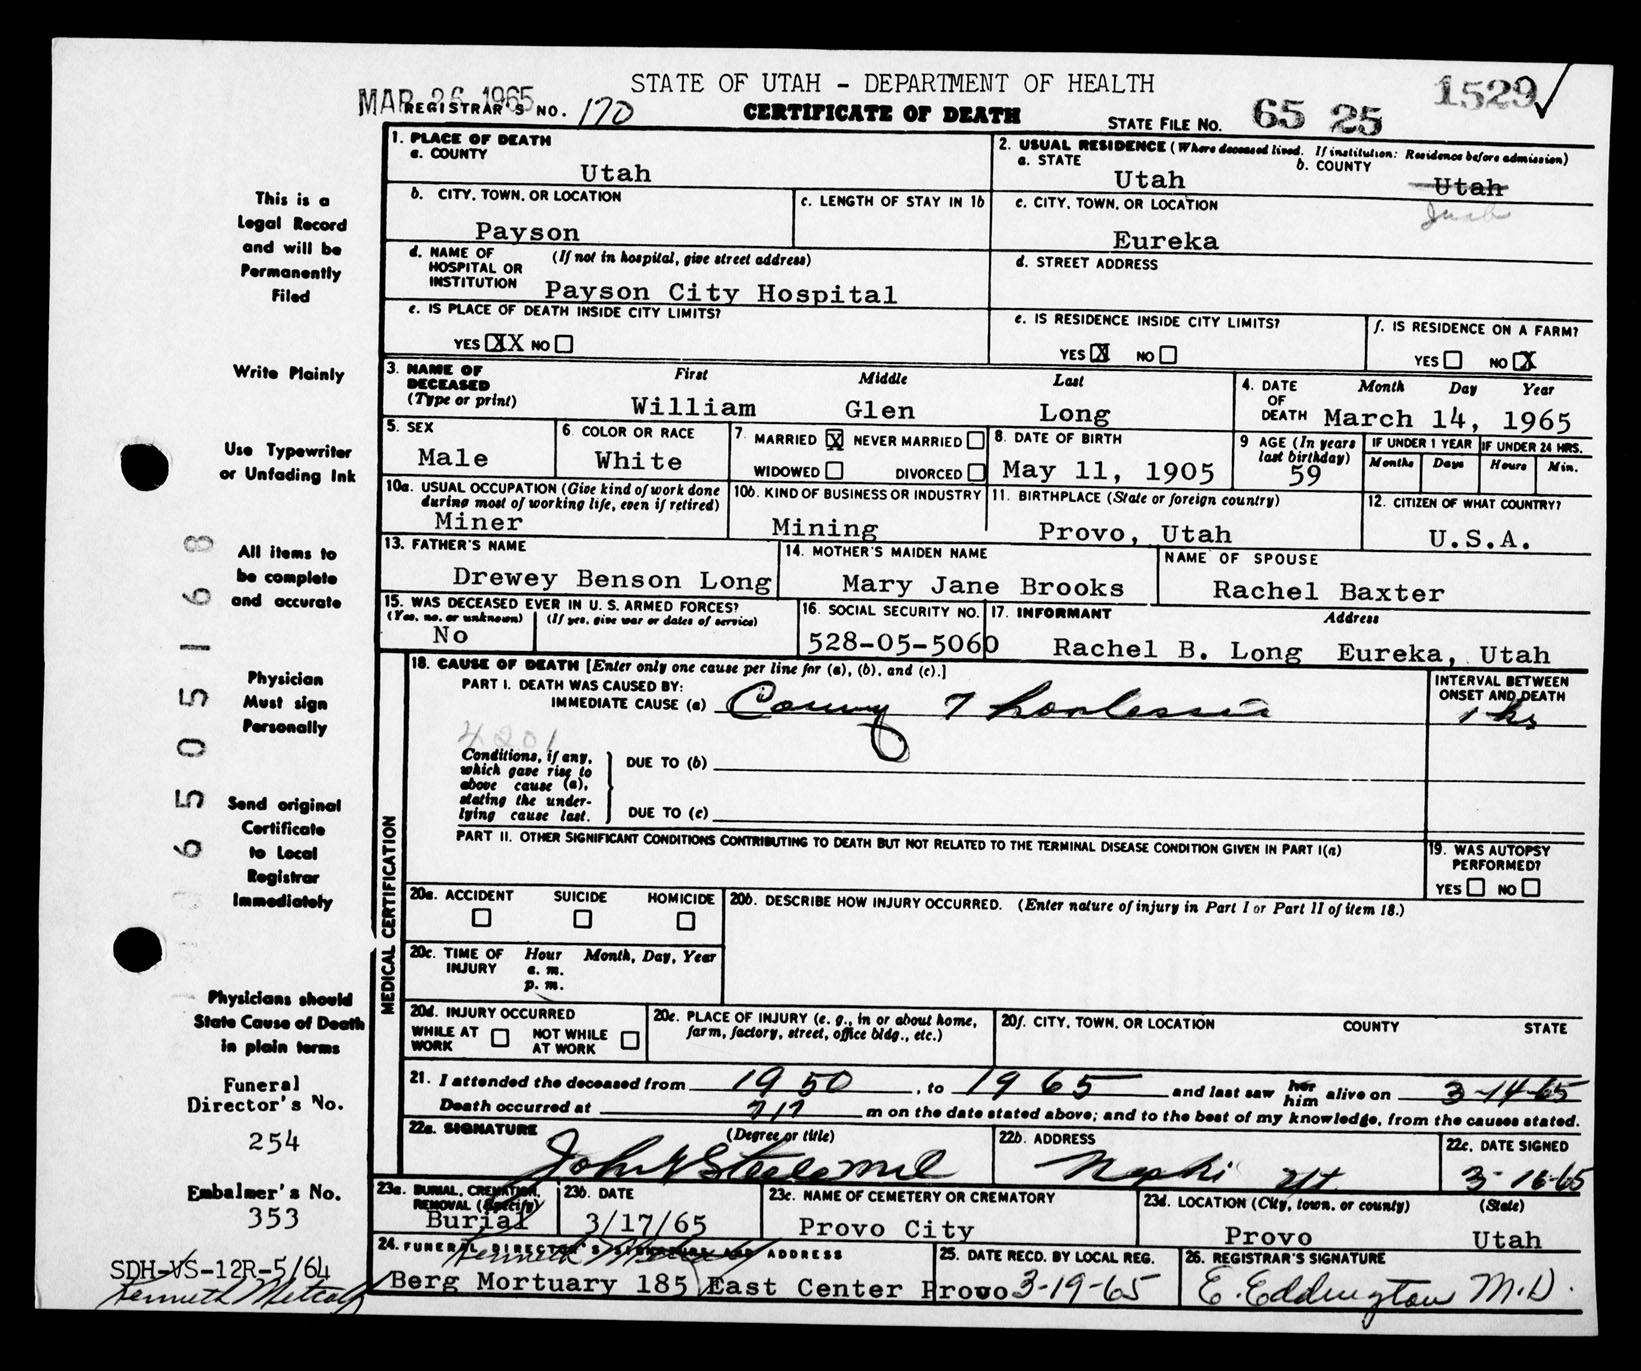 STATE OF UTAH - DEPARTMENT OF HEALTH
1529
MAR 26 1965
REGISTRAR'S NO. 170
CERTIFICATE OF DEATH
STATE FILE NO. 65 25
1. PLACE OF DEATH
a. COUNTY
Utah
2. USUAL RESIDENCE (Where deceased lived. If institution: Residence before admission)
a. STATE
Utah
b. COUNTY
Utah
Juab
b. CITY, TOWN, OR LOCATION
Payson
c. LENGTH OF STAY IN 1b
c. CITY, TOWN, OR LOCATION
Eureka
d. NAME OF HOSPITAL OR INSTITUTION
(If not in hospital, give street address)
Payson City Hospital
d. STREET ADDRESS
e. IS PLACE OF DEATH INSIDE CITY LIMITS?
YES XX NO
e. IS RESIDENCE INSIDE CITY LIMITS?
YES X NO
f. IS RESIDENCE ON A FARM?
YES NO X
3. NAME OF DECEASED
(Type or print)
First Middle Last
William Glen Long
4. DATE OF DEATH
Month Day Year
March 14, 1965
5. SEX
Male
6. COLOR OR RACE
White
7. MARRIED X NEVER MARRIED
WIDOWED DIVORCED
8. DATE OF BIRTH
May 11, 1905
9 AGE (In years last birthday)
59
IF UNDER 1 YEAR
Months Days
IF UNDER 24 HRS.
Hours Min.
10a. USUAL OCCUPATION (Give kind of work done during most of working life, even if retired)
Miner
10b. KIND OF BUSINESS OR INDUSTRY
Mining
11. BIRTHPLACE (State or foreign country)
Provo, Utah
12. CITIZEN OF WHAT COUNTRY?
U.S.A.
13. FATHER'S NAME
Drewey Benson Long
14. MOTHER'S MAIDEN NAME
Mary Jane Brooks
NAME OF SPOUSE
Rachel Baxter
15. WAS DECEASED EVER IN U. S. ARMED FORCES?
(Yes, no, or unknown) (If yes, give war or dates of service)
No
16. SOCIAL SECURITY NO.
528-05-5060
17. INFORMANT Address
Rachel B. Long Eureka, Utah
MEDICAL CERTIFICATION
18. CAUSE OF DEATH [Enter only one cause per line for (a), (b), and (c).]
PART I. DEATH WAS CAUSED BY:
IMMEDIATE CAUSE (a)
INTERVAL BETWEEN ONSET AND DEATH
1 hr
4201
Conditions, if any, which gave rise to above cause (a), stating the underlying cause last.
DUE TO (b)
DUE TO (c)
PART II. OTHER SIGNIFICANT CONDITIONS CONTRIBUTING TO DEATH BUT NOT RELATED TO THE TERMINAL DISEASE CONDITION GIVEN IN PART I(a)
19. WAS AUTOPSY PERFORMED?
YES NO
20a. ACCIDENT SUICIDE HOMICIDE
20b. DESCRIBE HOW INJURY OCCURRED. (Enter nature of injury in Part I or Part II of item 18.)
20c. TIME OF INJURY
Hour Month, Day, Year
a. m.
p. m.
20d. INJURY OCCURRED
WHILE AT WORK NOT WHILE AT WORK
20e. PLACE OF INJURY (e. g., in or about home, farm, factory, street, office bldg., etc.)
20f. CITY, TOWN, OR LOCATION COUNTY STATE
21. I attended the deceased from 1950, to 1965 and last saw her him alive on 3-14-65
Death occurred at m on the date stated above; and to the best of my knowledge, from the causes stated.
22a. SIGNATURE (Degree or title)
John Steele MD
22b. ADDRESS
Nephi Ut
22c. DATE SIGNED
3-16-65
23a. BURIAL, CREMATION, REMOVAL (Specify)
Burial
23b. DATE
3/17/65
23c. NAME OF CEMETERY OR CREMATORY
Provo City
23d. LOCATION (City, town, or county) (State)
Provo Utah
24. FUNERAL DIRECTOR'S SIGNATURE AND ADDRESS
Kenneth Metcalf
Berg Mortuary 185 East Center Provo
25. DATE RECD. BY LOCAL REG.
3-19-65
26. REGISTRAR'S SIGNATURE
E. Eddington M.D.
This is a
Legal Record
and will be
Permanently
Filed
Write Plainly
Use Typewriter
or Unfading Ink
All items to
be complete
and accurate
Physician
Must sign
Personally
Send original
Certificate
to Local
Registrar
Immediately
Physicians should
State Cause of Death
in plain terms
Funeral
Director's No.
254
Embalmer's No.
353
SDH-VS-12R-5/64
Kenneth Metcalf
6505168